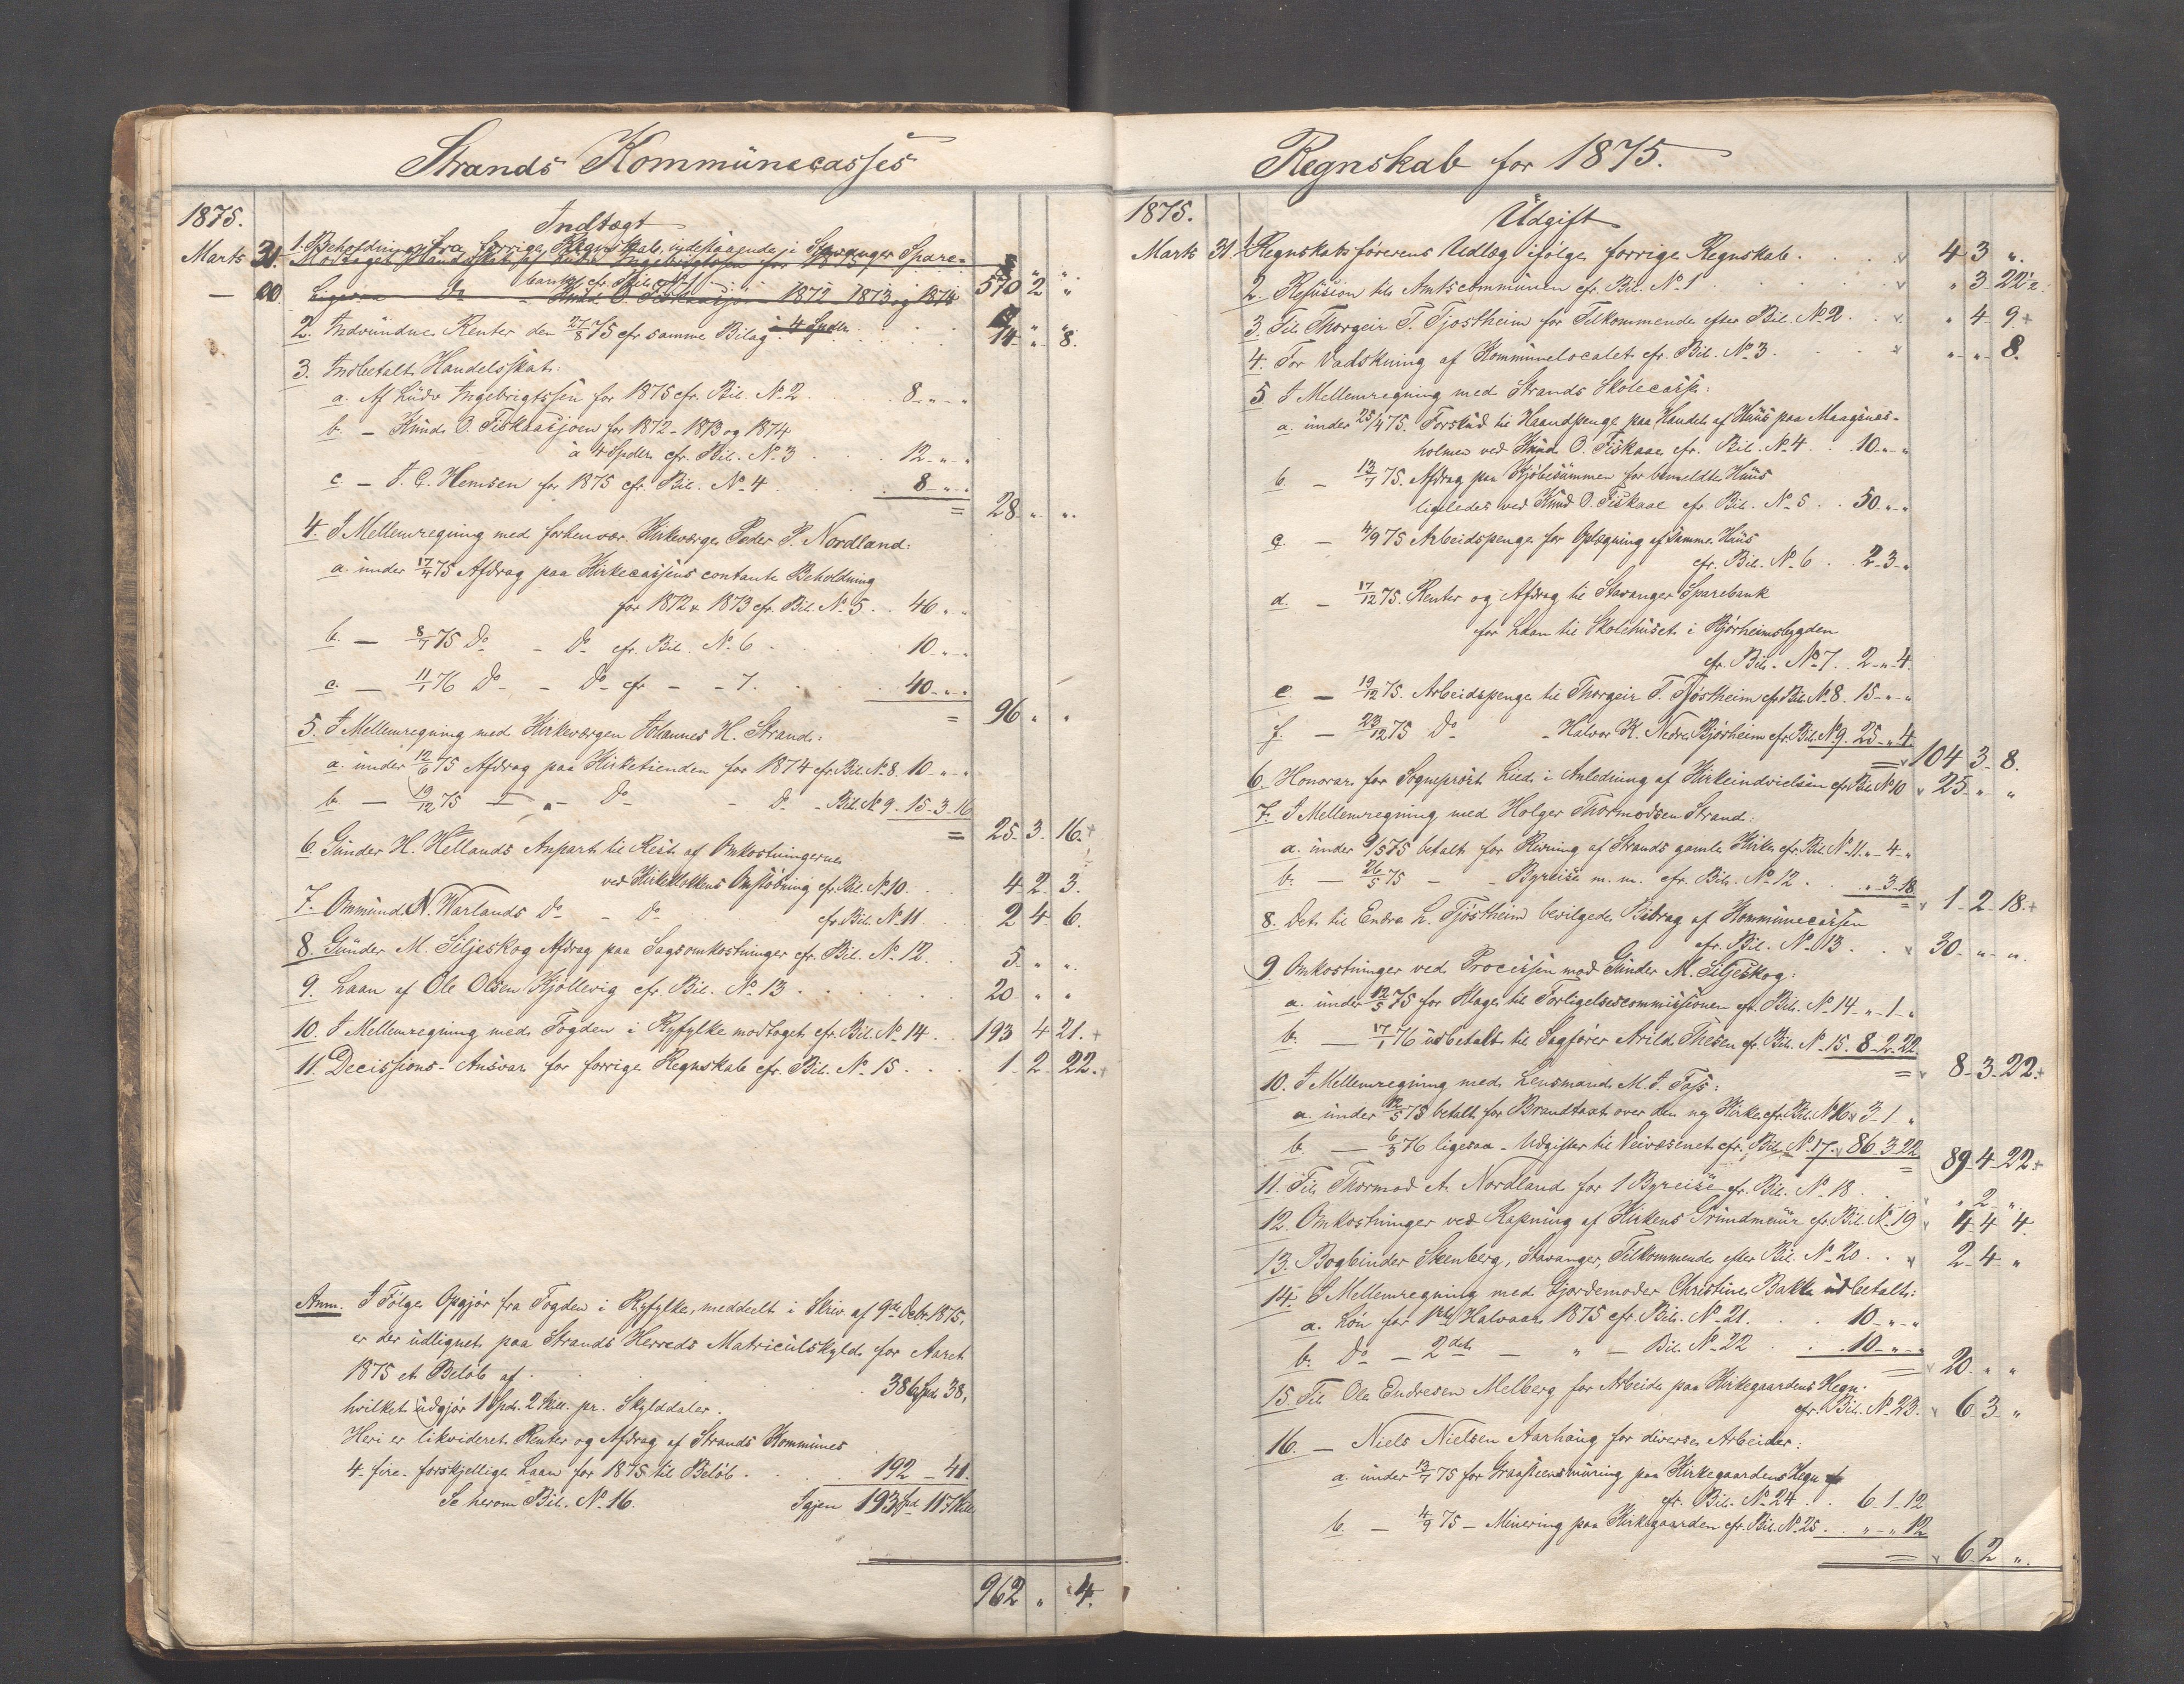 Strands Kommunecasses
1875.
Indtægt
Marts 31. 1. Beholdning fra forrige Regnskab, indestaaende i Stavanger Spare-
banks cfr. Bil. № 1 570 2 "
2. Indvundne Renter den 27/8 75 cfr samme Bilag 14 " 8.
3. Indbetalt Handelsskat:
a. Af Ludv Ingebrigtsen for 1875 cfr. Bil. № 2 8 - " - "
b. - Knud O. Fiskaasjøen for 1872 - 1873 og 1874
à 4 Spdlr cfr. Bil. № 3 12 - " - "
c - T. C. Hemsen for 1875 cfr Bil. № 4 8 - " - "
= 28 - " - "
4. I Mellemregning med forhenvær. Kirkeværge Peder P. Nordland:
a. under 17/4 75 Afdrag paa Kirkecassens contante Beholdning
for 1872 & 1873 cfr. Bil. № 5 46 " "
b. — 8/7 75 Do - Do cfr. Bil. № 6 10 - " - "
c. — 11/1 76 Do - Do cfr - - 7. 40 - " - "
= 96 " "
5. I Mellemregning med Kirkeværgen Johannes H. Strand:
a. under 12/6 75 Afdrag paa Kirketienden for 1874 cfr. Bil. № 8. 10 - " - "
b. — 19/12 75 Do - Do - Bil. № 9. 15 - 3 - 16
= 25 - 3 - 16.
6. Gunder H. Hellands Anpart til Rest af Omkostningerne
ved Kirkeklokkens Omstøbning cfr. Bil. № 10. 4 2 3.
7. Ommund N. Warlands Do - Do cfr. Bil. № 11 2 4 6.
8. Gunder M. Siljeskog Afdrag paa Sagsomkostninger cfr. Bil. № 12. 5. " "
9. Laan af Ole Olsen Kjøllevig cfr. Bil. № 13 20 " "
10. I Mellemregning med Fogden i Ryfylke modtaget cfr. Bil. № 14 193 4 21.
11. Decissions-Ansvar for forrige Regnskab cfr. Bil. № 15 1 - 2 - 22.
Anm. I Følge Opgjør fra Fogden i Ryfylke, meddeelt i Skriv. af 9de Octbr 1875,
er der udlignet paa Strands Herreds Matriculskyld for Aaret
1875 et Beløb af 386 Spd 38,
hvilket udgjør 1 Spd. 2 Skill. pr. Skylddaler.
Heri er likvideret Renter og Afdrag af Strands Kommunes
4 - fire - forskjellige Laan for 1875 til Beløb 192 - 41.
Se herom Bil. № 16. Igjen 193 Spd 117 Skill
962 " 4.
Regnskab for 1875.
1875.
Udgift
Marts 31. 1. Regnskabsførerens Udlæg ifølge forrige Regnskab 4 3 "
2. Refusion til Amtscommunen cfr. Bil. № 1 " 3 - 22½
3. Til Thorgeir T. Tjøstheim for Tilkommende efter Bil. № 2 " 4 - 9
4. For Vadskning af Kommunelocalet cfr. Bil. № 3. " - " - 8.
5. I Mellemregning med Strands Skolecasse:
a. under 25/4 75. Forskud til Haandpenge paa Handel af Huus paa Maagenæs-
holmen ved Knud O. Fiskaae cfr. Bil. № 4 10 - " - "
b. — 13/7 75. Afdrag paa Kjøbesummen for bemeldte Huus
ligeledes ved Knud O. Fiskaae cfr. Bil. № 5 50 - " - "
c. — 4/9 75 Arbeidspenge for Opsægning af samme Huus
cfr. Bil. № 6 2 - 3 - "
d. — 17/12 75. Renter og Afdrag til Stavanger Sparebank
for Laan til Skolehuset i Bjørheimsbygden
cfr. Bil. № 7. 2 - " - 4.
e. — 19/12 75. Arbeidspenge til Thorgeir T. Tjøstheim cfr Bil. № 8. 15 - " - "
f. — 23/12 75 Do - Halvor K. Nedre Bjørheim cfr. Bil. № 9. 25 - " - 4
= 104 3 - 8.
6. Honorar for Sogneprest Lied i Anledning af Kirkeindvielsen cfr Bil. № 10 25 - " - "
7. I Mellemregning med Holger Thormodsen Strand:
a. under 9/5 75 betalt for Rivning af Strands gamle Kirke cfr. Bil. № 11. " - 4 - "
b. — 26/5 75 - - Byreise m. m. cfr. Bil. № 12 " - 3 - 18
= 1 - 2 - 18.
8. Det til Endre L. Tjøstheim bevilgede Bidrag af Kommunecassen
cfr. Bil. № 13. 30 - " - "
9. Omkostninger ved Processen mod Gunder M. Siljeskog:
a. under 12/5 75 for Klage til Forligelsescommissionen cfr. Bil. № 14 - " - 1 - "
b. — 17/1 76 udbetalt til Sagfører Arild Thesen cfr. Bil. № 15. 8 - 2 - 22.
= 8 - 3 - 22.
10. I Mellemregning med Lensmand M. T. Foss:
a. under 12/5 75 betalt for Brandtaxt over den ny Kirke, cfr. Bil. № 16 3 - 1 - "
b. — 6/3 76 ligesaa - Udgifter til Veivæsenet cfr. Bil. № 17. 86 - 3 - 22
= 89 - 4 - 22.
11. Til Thormod A. Nordland for 1 Byreise cfr. Bil. № 18 " 2 - "
12. Omkostninger ved Kapning af Kirkens Grundmuur cfr. Bil. № 19 4 - 4 4.
13. Bogbinder Steenberg, Stavanger, Tilkommende efter Bil. № 20 2 - 4 - "
14. I Mellemregning med Gjordemoder Christine Bakke udbetalt:
a. Løn for 1ste Halvaar 1875 cfr. Bil. № 21. 10 - " - "
b. Do - 2det — " — Bil. № 22 10 - " - "
= 20. " "
15. Til Ole Endresen Melberg for Arbeide paa Kirkegaardens Hegn.
cfr. Bil. № 23. 6 - 3 - "
16. — Niels Nielsen Aarhaug for diverse Arbeider:
a. under 13/7 75 for Graasteensmuring paa Kirkegaardens Hegn
cfr. Bil. № 24 6 - 1 - 12
b. — 4/9 75 - Minering paa Kirkegaarden cfr. Bil. № 25 " - " 12
= 6 2 "